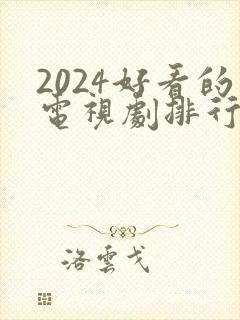 2024好看的
電視劇排行
洛雲戈